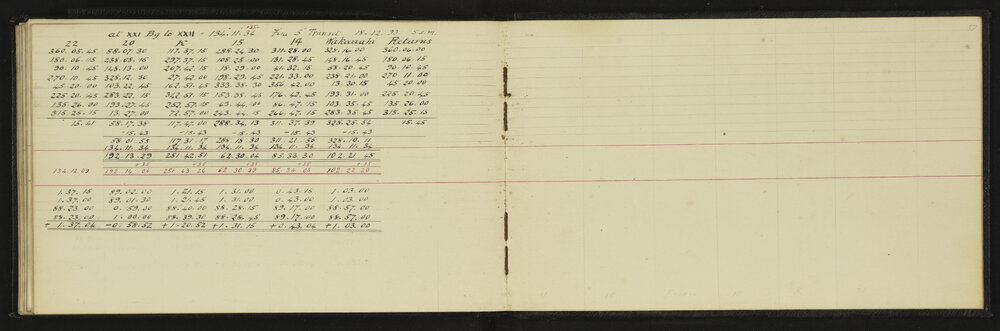 +35
at XXI By to XXII - 134.11.34 5" Transit 18.12.33 5 a.m.
22 20 K 15 14 Wakauaki Returns
360.05.45 58.07.30 117.37.15 288.24.30 311.28.00 328.16.00 360.06.00
180.06.15 238.08.15 297.37.15 108.25.00 131.28.45 148.16.45 180.06.15
90.10.45 148.13.00 207.42.15 18.29.00 41.32.15 58.20.45 90.10.45
270.10.45 328.12.30 27.42.00 198.29.45 221.33.00 238.21.00 270.11.00
45.20.00 103.22.45 162.51.45 333.38.30 356.42.00 13.30.15 45.20.00
225.20.45 283.22.15 342.51.15 153.38.45 176.42.45 193.31.00 225.20.45
135.26.00 193.27.45 252.57.15 63.44.00 86.47.15 103.35.45 135.26.00
315.25.15 13.27.00 72.57.00 243.44.15 266.47.15 283.35.45 315.25.15
15.41 58.17.38 117.47.00 288.34.13 311.37.39 328.25.54 15.45
-15.43 -15.43 -15.43 -15.43 -15.43
58.01.55 117.31.17 288.18.30 311.21.56 328.10.11
134.11.34 134.11.34 134.11.34 134.11.34 134.11.34
192.13.29 251.42.51 62.30.04 85.33.30 102.21.45
+35 +35 +35 +35 +35
134.12.09 192.14.04 251.43.26 62.30.39 85.34.05 102.22.20
1.37.15 89.02.00 1.21.15 1.31.00 0.43.15 1.03.00
1.37.00 89.01.30 1.21.45 1.31.00 0.43.00 1.03.00
88.23.00 0.59.00 88.40.00 88.28.15 89.17.00 88.57.00
88.23.00 1.00.00 88.39.30 88.28.45 89.17.00 88.57.00
+1.37.04 -0.58.52 +1.20.52 +1.31.15 +0.43.04 +1.03.00